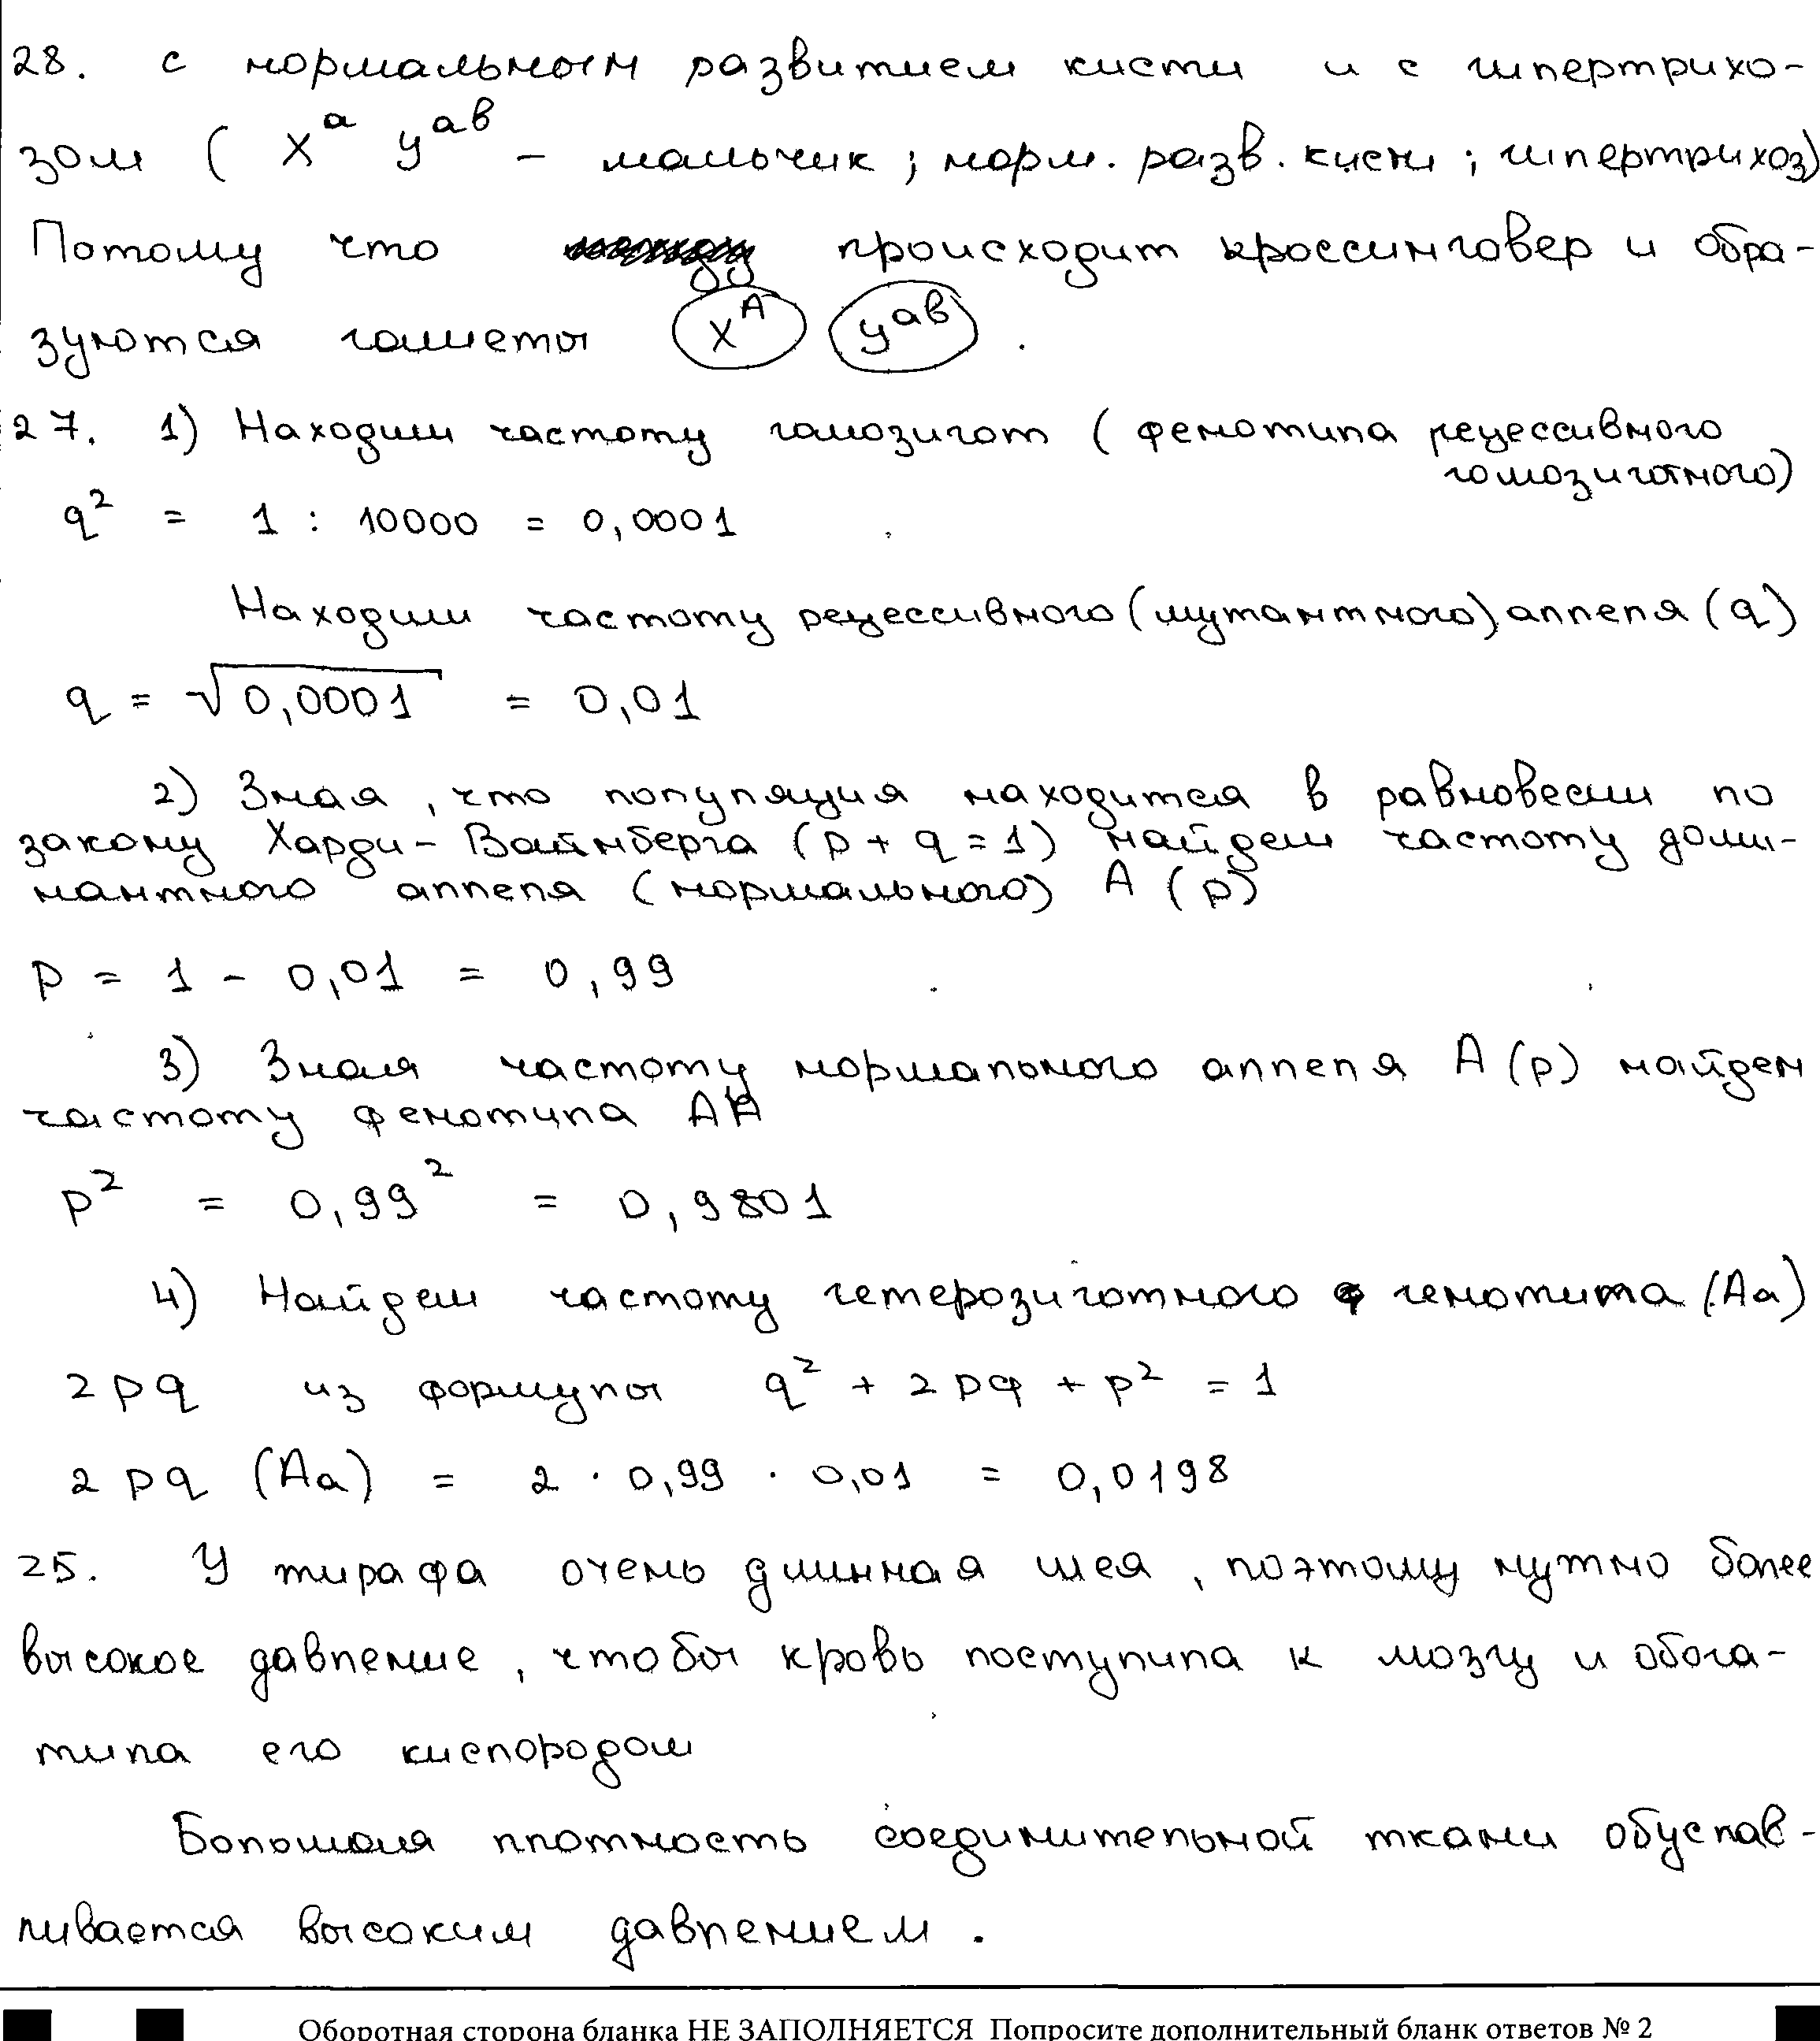 28. с нормальным развитием кисти и с гипертрихо-
зом ( X^a y^ab – мальчик ; норм. разв. кисти ; гипертрихоз)
Потому что происходит кроссинговер и обра-
зуются гаметы X^A y^ab .
27. 1) Находим частоту гомозигот ( фенотипа рецессивного
гомозиготного)
q² = 1 : 10000 = 0,0001
Находим частоту рецессивного (мутантного) аллеля (q)
q = √0,0001 = 0,01
2) Зная , что популяция находится в равновесии по
закону Харди – Вайнберга (p + q = 1) найдем частоту доми-
нантного аллеля (нормального) A (p)
p = 1 - 0,01 = 0,99
3) Зная частоту нормального аллеля A (p) найдем
частоту фенотипа AA
p² = 0,99² = 0,9801
4) Найдем частоту гетерозиготного генотипа (Aa)
2pq из формулы q² + 2pq + p² = 1
2pq (Aa) = 2 · 0,99 · 0,01 = 0,0198
25. У жирафа очень длинная шея , поэтому нужно более
высокое давление , чтобы кровь поступила к мозгу и обога-
тила его кислородом
Большая плотность соединительной ткани обуслав-
ливается высоким давлением .
Оборотная сторона бланка НЕ ЗАПОЛНЯЕТСЯ Попросите дополнительный бланк ответов № 2